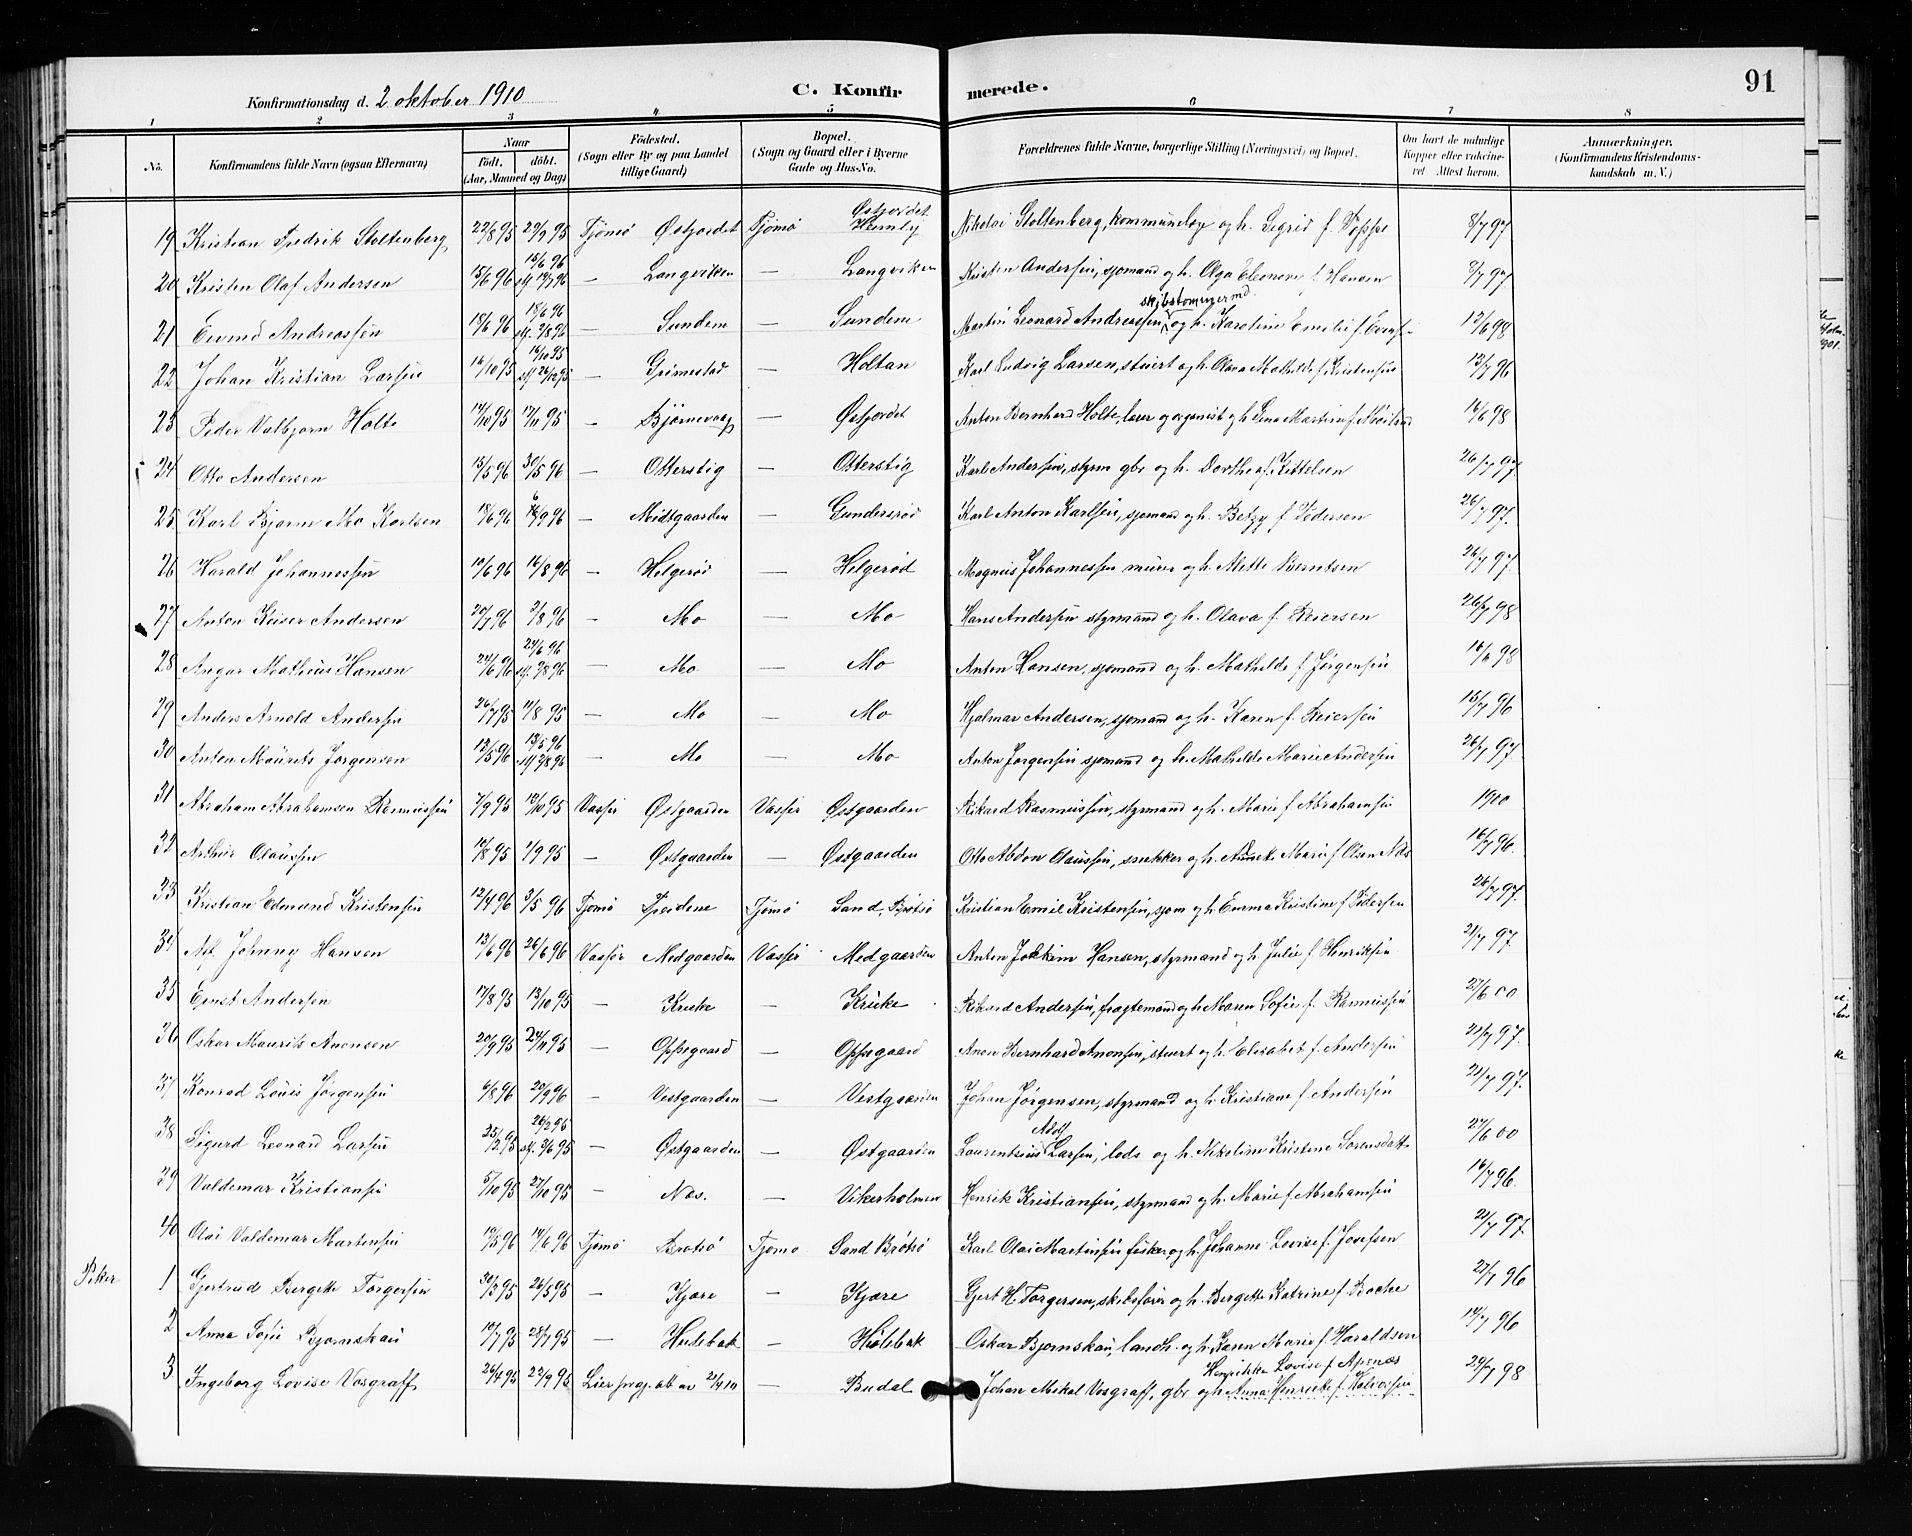 Konfirmationsdag d. 2 oktober 1910 C. Konfirmerede. 91
1 2 3 4 5 6 7 8
No. Konfirmandens fulde Navn (ogsaa Efternavn) Naar født. døbt. (Aar, Maaned og Dag) Fødested. (Sogn eller By og paa Landet tillige Gaard) Bopæl. (Sogn og Gaard eller i Byerne Gade og Hus-No. Forældrenes fulde Navne, borgerlige Stilling (Næringsvei) og Bopæl. Om havt de naturlige Kopper eller vakcineret Attest herom. Anmærkninger. (Konfirmandens Kristendomskundskab m. V.)
19 Kristian Fredrik Stoltenberg 22/8 95 29/9 95 Tjømø Østjordet Tjømø Østjordet Heimly Nikolai Stoltenberg, kommunelæg og h. Sigrid f. Foppe 8/7 97
20 Kristen Olaf Andersen 15/6 96 15/6 96 st. 19/7 96 — Langviken — Langviken Kristen Andersen, sjømand og h. Olga Eleonore f. Hansen 8/7 97
21 Eivind Andreassen 18/6 96 18/6 96 st. 2/8 96 — Sundene — Sundene Martin Leonard Andreassen, skibstømmermd. og h. Karoline Emilie f. 12/6 98
22 Johan Kristian Larsen 16/10 95 16/10 95 st 26/12 95 — Grimestad — Holtan Karl Ludvig Larsen, stuert og h. Olava Mathilde f. Kristensen 13/7 96
23 Peder Valbjørn Holte 14/10 95 17/11 95 — Bjørnevaag — Østjordet Anton Bernhard Holte, lærer og organist og h. Lina Martine f. 16/6 98
24 Otto Andersen 15/5 96 30/5 96 — Otterstig — Otterstig Karl Andersen, styrm gbr og h. Dorthea f. Kittelsen 26/7 97.
25 Karl Bjarne Mo Karlsen 18/6 96 6/9 96 — Midtgaarden — Gundersrød Karl Anton Karlsen, sjømand og h. Betzy f. Pedersen 26/7 97.
26 Harald Johannessen 10/6 96 16/8 96 — Helgerød — Helgerød Magnus Johannessen murer og h. Mette Berntsen 26/7 97.
27 Anton Keiser Andersen 20/7 96 2/8 96 — Mo — Mo Hans Andersen styrmand og h. Olava f. Reiersen 26/7 98
28 Ansgar Matheus Hansen 24/6 96 24/6 96 st. 2/8 96 — Mo — Mo Anton Hansen, sjømand og h. Mathilde f. Jørgensen 16/6 98
29 Anders Arnold Andersen 26/7 95 11/8 95 — Mo — Mo Hjalmar Andersen, sjømand og h. Karen f. Reiersen 15/7 96
30 Anton Maurits Jørgensen 13/5 96 13/5 96 st 2/8 96 — Mo — Mo Anton Jørgensen sjømand og h. Mathilde Marie Andersen 26/7 97
31 Abraham Abrahamsen Rasmussen 7/9 95 13/10 95 Vasser Østgaarden Vasser Østgaarden Rikard Rasmussen, styrmand og h. Marie f. Abrahamsen 1900
32 Arthur Olaussen 10/8 95 1/9 95 — Østgaarden — Østgaarden Otto Abdon Olaussen, snekker og h. Marie f. Olsen Næs 16/7 96.
33 Kristian Edmund Kristensen 12/4 96 3/5 96 Tjømø Treidene Tjømø Sand, Brøtsø Kristian Emil Kristensen, sjøm og h. Emma Kristine f. Pedersen 26/7 97.
34 Alf Johnny Hansen 13/6 96 26/6 96 Vasser Medgaarden Vasser Medgaarden Anton Jokkim Hansen, styrmand og h. Julie f. Henriksen 21/7 97.
35 Ernst Andersen 17/8 95 13/10 95 — Kruke — Kruke Rikard Andersen, fragtemand og h. Maren Sofie f. Rasmussen 27/6 00
36 Oskar Maurits Anonsen 20/9 95 24/11 95 — Oppegaard — Oppegaard Anon Bernhard Anonsen, stuert og h. Elisabet f. Andersen 21/7 97.
37 Konrad Louis Jørgensen 6/8 96 20/9 96 — Vestgaarden — Vestgaarden Johan Jørgensen, styrmand og h. Kristiane f. Andersen 21/7 97.
38 Sigurd Leonard Larsen 25/12 95 st. 2/6 95 — Østgaarden — Østgaarden Laurentsius Adolf Larsen, lods og h. Nikoline Kristine Sørensdatt. 27/6 00
39 Valdemar Kristiansen 5/10 95 27/10 95 — Næs. — Vikerholmen Henrik Kristiansen, styrmand og h. Marie f. Abrahamsen 16/7 96.
40 Olai Valdemar Martensen 19/5 96 14/6 96 Tjømø Brøtsø Tjømø Sand Brøtsø Karl Olai Martinsen fisker og h. Johanne Lovise f. Josefsen 21/7 97.
Piker 1 Gjertrud Bergitte Torgersen 30/3 95 26/5 95 — Kjære — Kjære Gjert H. Torgersen, skibsfører og h. Bergette Katrine f. Bache 21/7 96
2 Anna Sofie Bjørnskau 10/7 95 28/7 95 — Hulebak — Hulebak Oskar Bjørnskau, landh. og h. Karen Marie f. Haraldsen 14/7 96
3 Ingeborg Lovise Vosgraff 26/4 95 22/9 95 Lier prgj. att av 21/4 10 — Budal Johan Mikal Vosgraff, gbr og h. Anna Henrikke f. Halvorsen Henrikke Lovise f. Apenæs 29/7 98